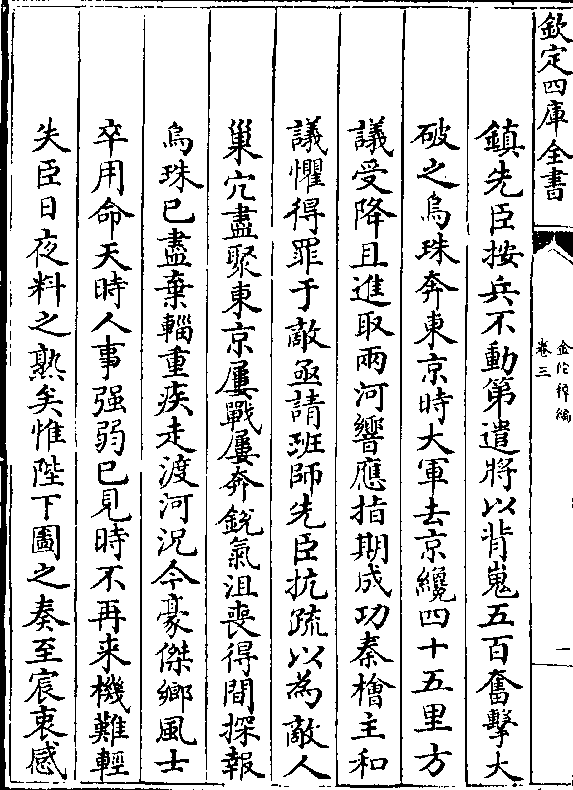 欽定四庫全書
金佗稡編
卷三
一
鎮先臣按兵不動第遣將以背嵬五百奮擊大
破之烏珠奔東京時大軍去京纔四十五里方
議受降且進取兩河響應指期成功秦檜主和
議懼得罪于敵亟請班師先臣抗疏以為敵人
巢穴盡聚東京屢戰屢奔銳氣沮喪得間探報
烏珠已盡棄輜重疾走渡河況今豪傑鄉風士
卒用命天時人事强弱已見時不再来機難輕
失臣日夜料之熟矣惟陛下圖之奏至宸衷感